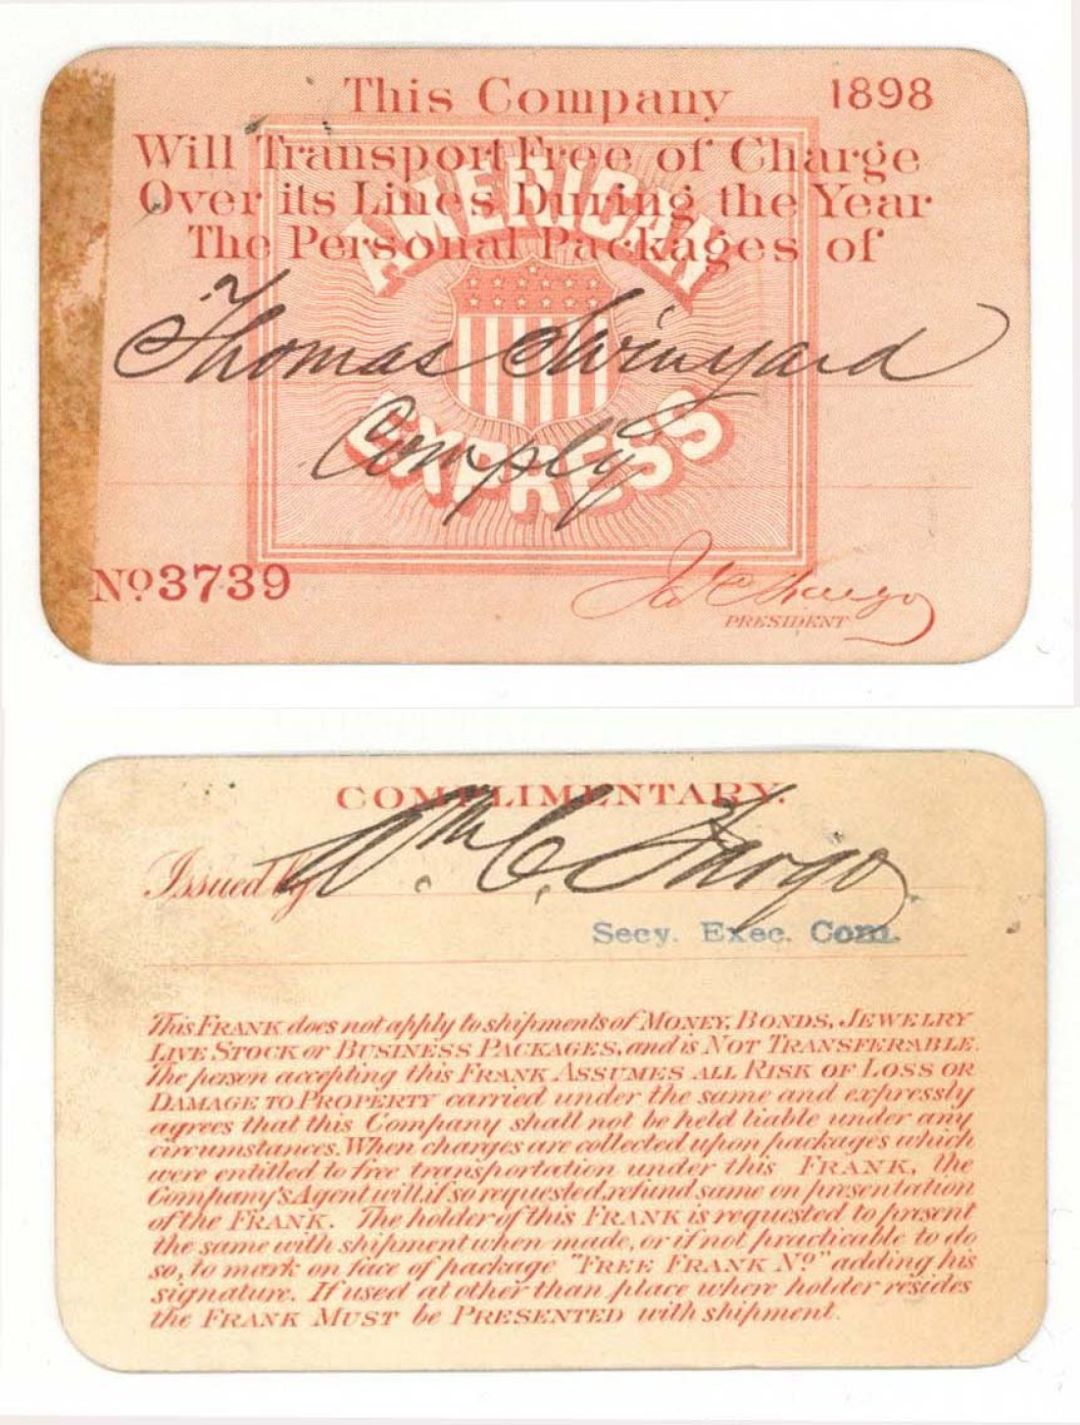 This Company 1898
Will Transport Free of Charge
Over its Lines During the Year
The Personal Packages of
AMERICAN
Thomas Swinyard
EXPRESS
Comply
No 3739
Jas C Fargo
PRESIDENT
COMPLIMENTARY.
Issued by Wm. C. Fargo
Secy. Exec. Com.
This FRANK does not apply to shipments of MONEY, BONDS, JEWELRY
LIVE STOCK or BUSINESS PACKAGES, and is NOT TRANSFERABLE.
The person accepting this FRANK ASSUMES ALL RISK OF LOSS OR
DAMAGE TO PROPERTY carried under the same and expressly
agrees that this Company shall not be held liable under any
circumstances. When charges are collected upon packages which
were entitled to free transportation under this FRANK, the
Company's Agent will, if so requested, refund same on presentation
of the FRANK. The holder of this FRANK is requested to present
the same with shipment when made, or if not practicable to do
so, to mark on face of package "FREE FRANK No" adding his
signature. If used at other than place where holder resides
the FRANK MUST be PRESENTED with shipment.